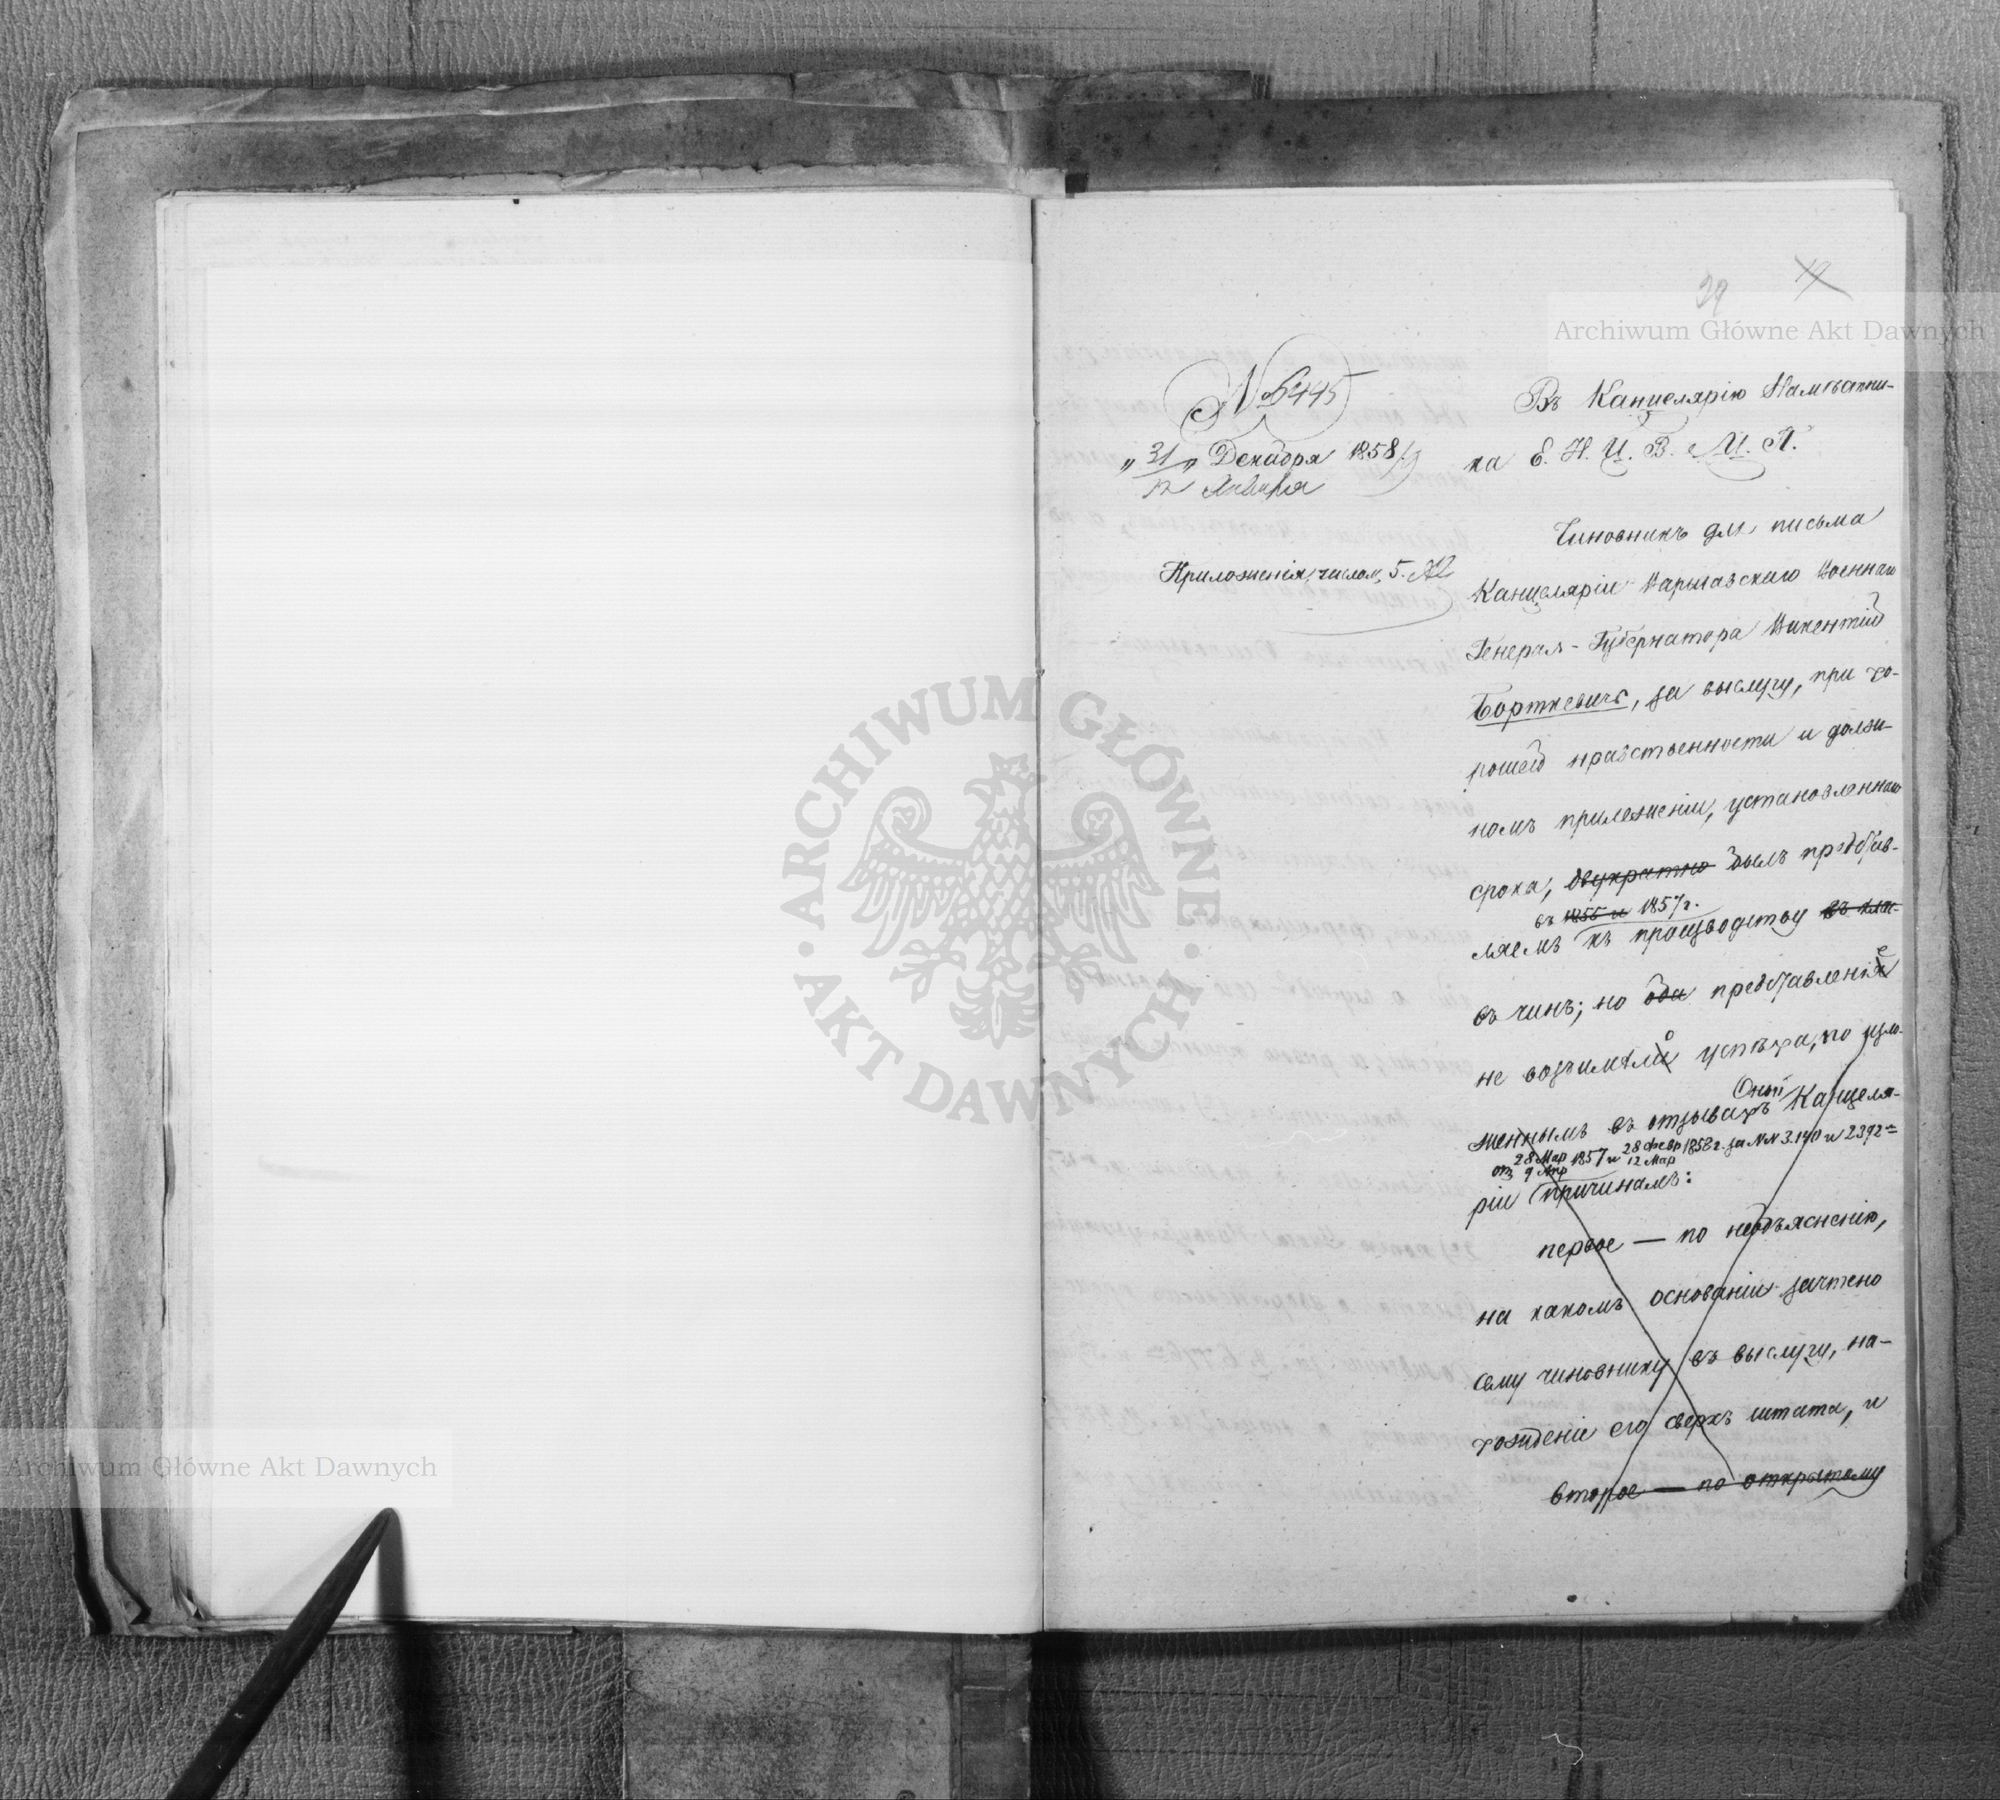 29 19
Archiwum Główne Akt Dawnych
№ 6445
„31/12„ Декабря/Января 1858/9
Приложенія, числом, 5.
Въ Канцелярію Намѣстни-
ка Е. И. И. В. Ц. П.
Чиновникъ для письма
Канцеляріи Варшавскаго Военнаго
Генерал-Губернатора Викентій
Борткевичъ, за выслугу, при хо-
рошей нравственности и долж-
номъ прилежаніи, установленнаго
срока, двукратно былъ представ-
въ 1855 и 1857 г.
ляемъ къ производству въ клас-
въ чинъ; но оба представленіе
не возъимѣло успѣха, по изло-
Оной
женнымъ въ отзывахъ Канцеля-
отъ 28 Мар/9 Апр 1857 и 28 Февр/12 Мар 1858 г. за NN 3.190 и 2392
ріи причинамъ:
первое — по необъясненію,
на какомъ основаніи зачтено
сему чиновнику въ выслугу, на-
хожденіе его сверхъ штата, и
второе — по открытому
ARCHIWUM GŁÓWNE AKT DAWNYCH
Archiwum Główne Akt Dawnych